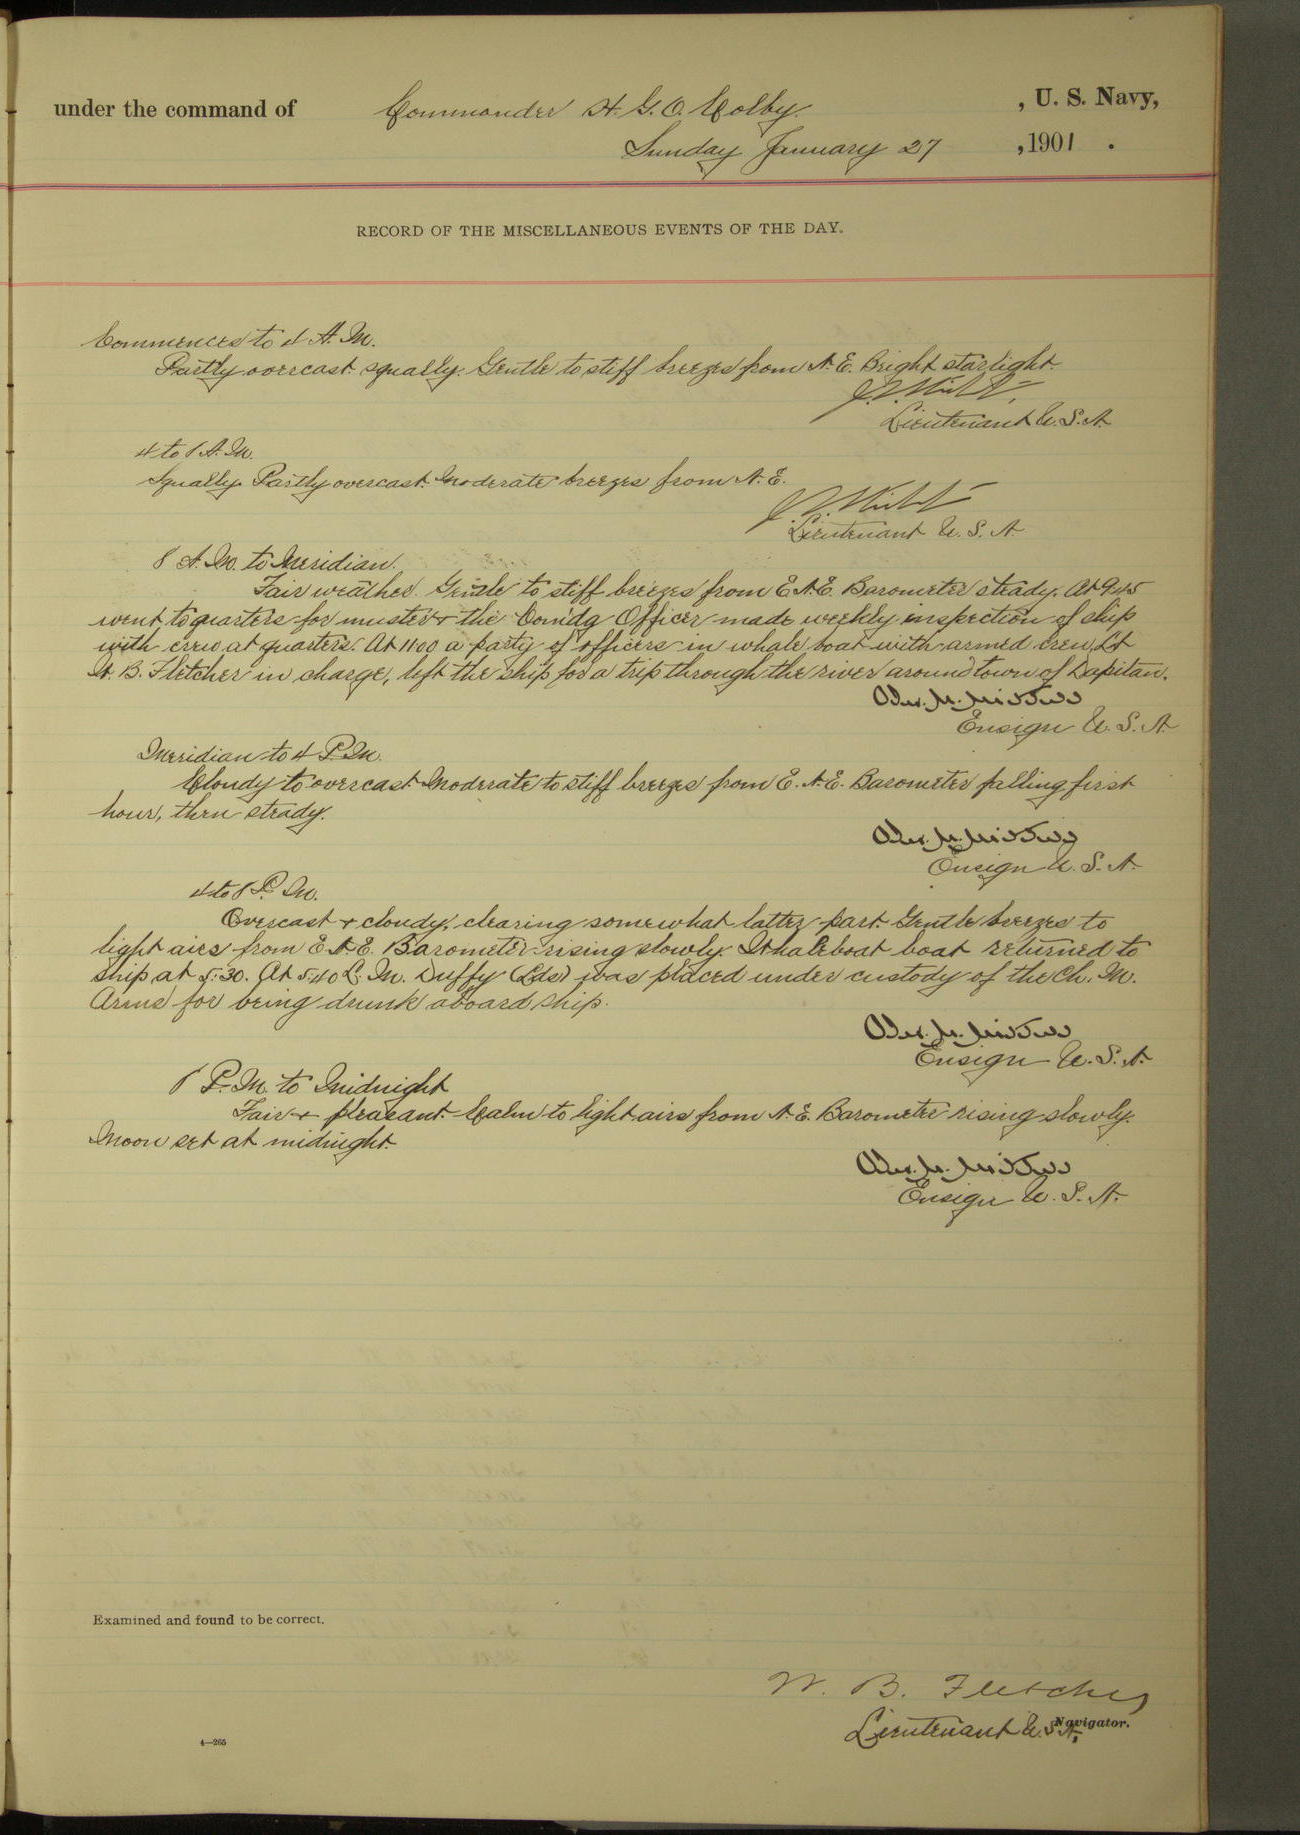 under the command of Commander H. G. O. Colby, U. S. Navy,
Sunday January 27, 1901.
RECORD OF THE MISCELLANEOUS EVENTS OF THE DAY.
Commences to 4 A.M.
Partly overcast squally. Gentle to stiff breezes from N.E. Bright starlight.
Lieutenant U.S.N.
4 to 8 A.M.
Squally Partly overcast. Moderate breezes from N.E.
Lieutenant U.S.N.
8 A.M. to Meridian.
Fair weather. Gentle to stiff breezes from E.N.E. Barometer steady. At 9.45
went to quarters for muster + the Com'dg Officer made weekly inspection of ship
with crew at quarters. At 11.00 a party of officers in whale boat with armed crew, Lt
W. B. Fletcher in charge, left the ship for a trip through the river around town of Dapitan.
Ensign U.S.N.
Meridian to 4 P.M.
Cloudy to overcast. Moderate to stiff breezes from E.N.E. Barometer falling first
hour, then steady.
Ensign U.S.N.
4 to 8 P.M.
Overcast + cloudy, clearing somewhat latter part. Gentle breezes to
light airs from E.N.E. Barometer rising slowly. Whaleboat boat returned to
ship at 5.30. At 5.40 L. M. Duffy (Lds) was placed under custody of the Ch. M.
Arms for being drunk aboard ship.
Ensign U.S.N.
8 P.M. to Midnight
Fair + pleasant. Calm to light airs from N.E. Barometer rising slowly.
Moon set at midnight.
Ensign U.S.N.
Examined and found to be correct.
W. B. Fletcher
Lieutenant U.S.N., Navigator.
4—265